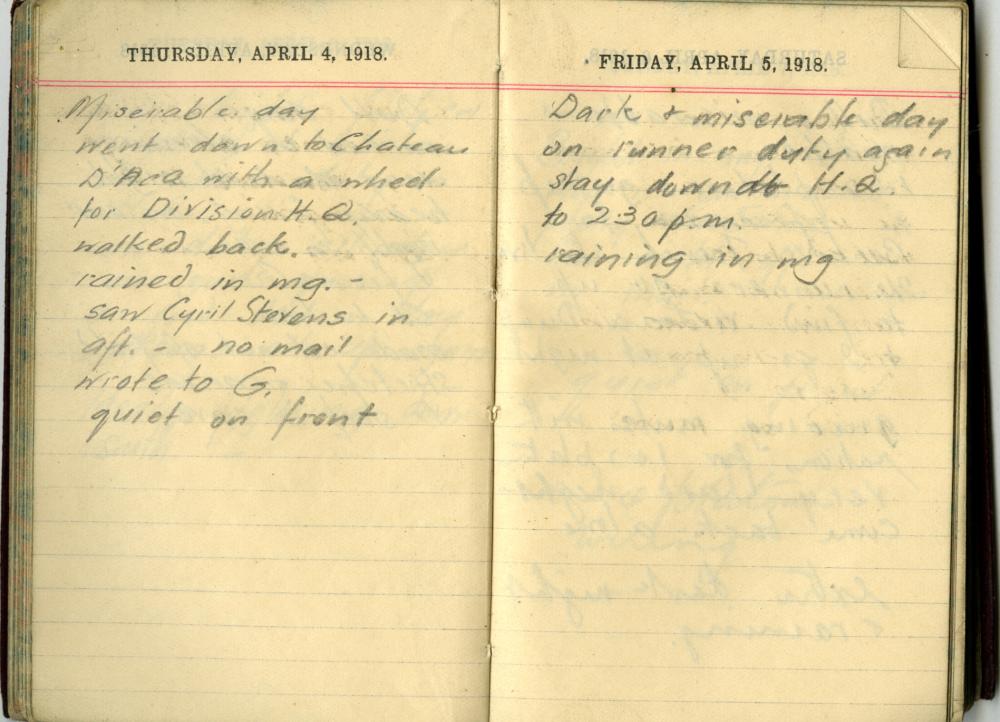 THURSDAY, APRIL 4, 1918.
Miserable day
went down to Chateau
D'Aca with a wheel
for Division H.Q.
walked back.
rained in mg. -
saw Cyril Stevens in
aft. - no mail
wrote to G.
quiet on front
FRIDAY, APRIL 5, 1918.
Dark + miserable day
on runner duty again
stay down at H.Q.
to 2:30 p.m.
raining in mg